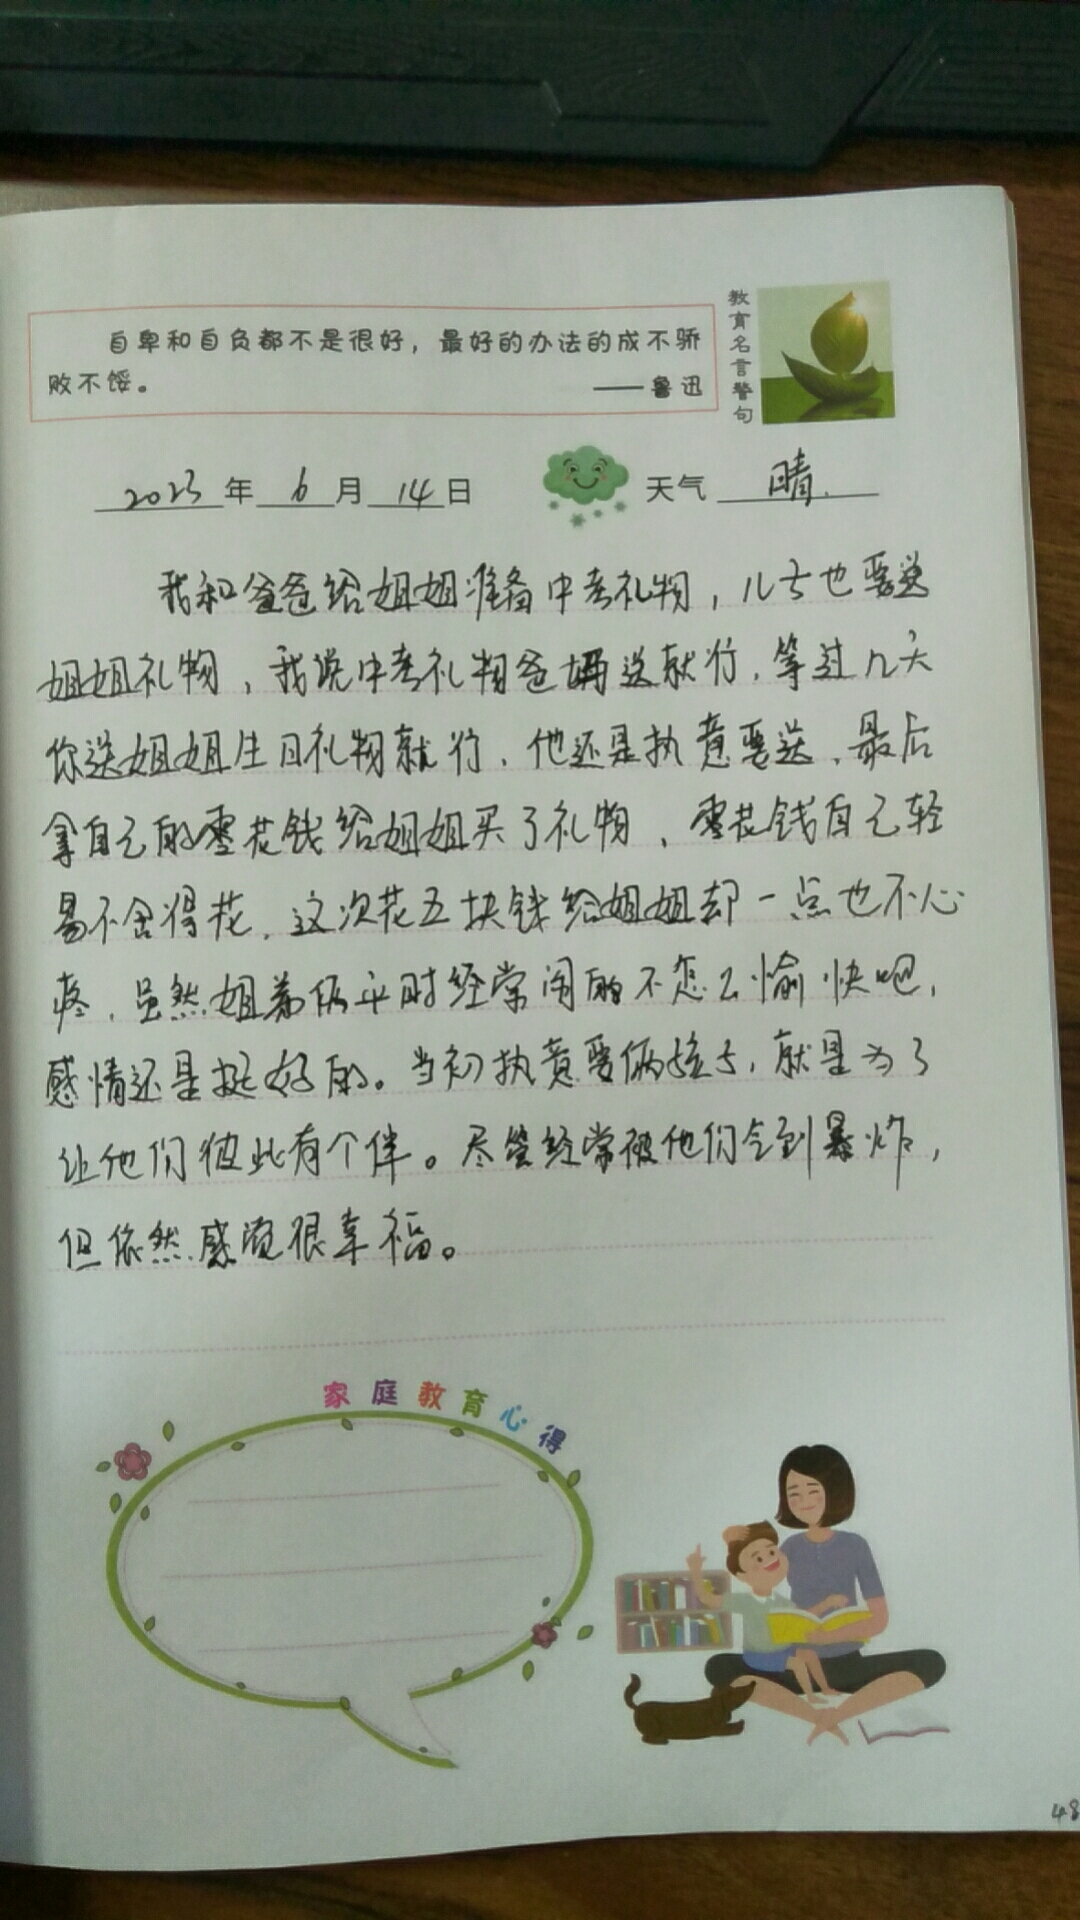 自卑和自负都不是很好，最好的办法的成不骄
败不馁。
——鲁迅
教育名言警句
2023年6月14日
天气 晴.
我和爸爸给姐姐准备中考礼物，儿子也要送
姐姐礼物，我说中考礼物爸妈送就行，等过几天
你送姐姐生日礼物就行，他还是执意要送，最后
拿自己的零花钱给姐姐买了礼物，零花钱自己轻
易不舍得花，这次花五块钱给姐姐却一点也不心
疼，虽然姐弟俩平时经常闹的不怎么愉快吧，
感情还是挺好的。当初执意要俩孩子，就是为了
让他们彼此有个伴。尽管经常被他们气到暴炸，
但依然感觉很幸福。
家庭教育心得
48